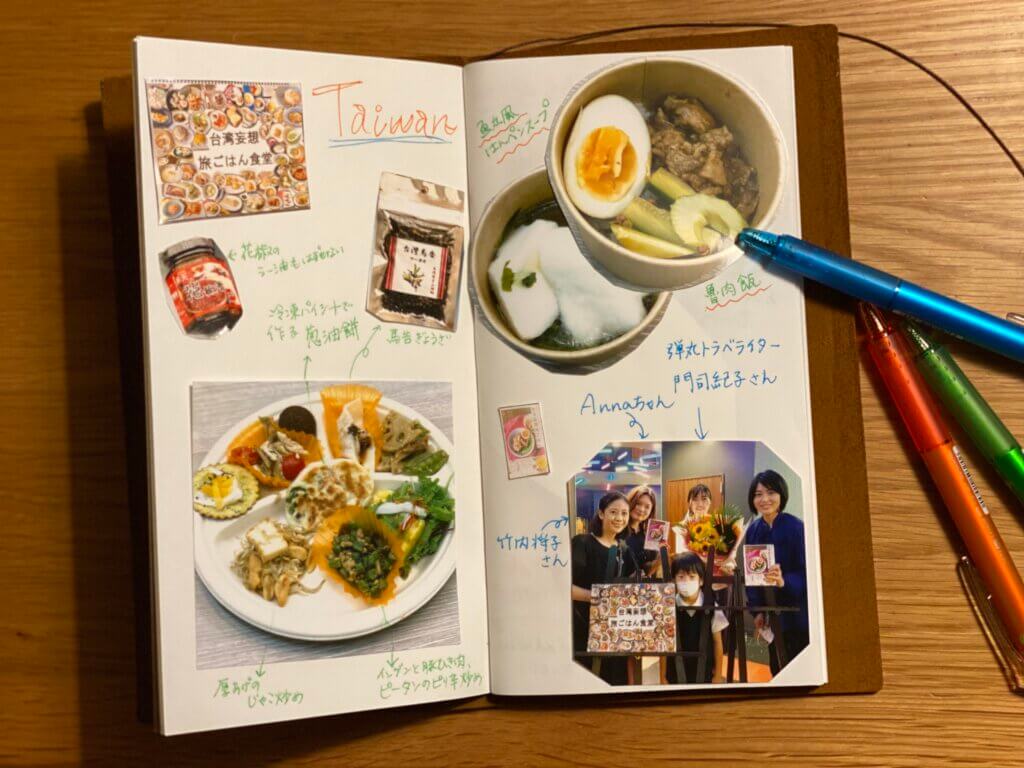 Taiwan
台湾妄想
旅ごはん食堂
花椒の
ラー油もはずせない
台灣馬告
冷凍パイシートで
作る葱油餅
馬告ぎょうざ
厚あげの
じゃこ炒め
インゲンと豚ひき肉、
ピータンのピリ辛炒め
魚丸風
はんペンスープ
魯肉飯
弾丸トラベライター
門司紀子さん
Annaちゃん
竹内将子
さん
台湾妄想
旅ごはん食堂